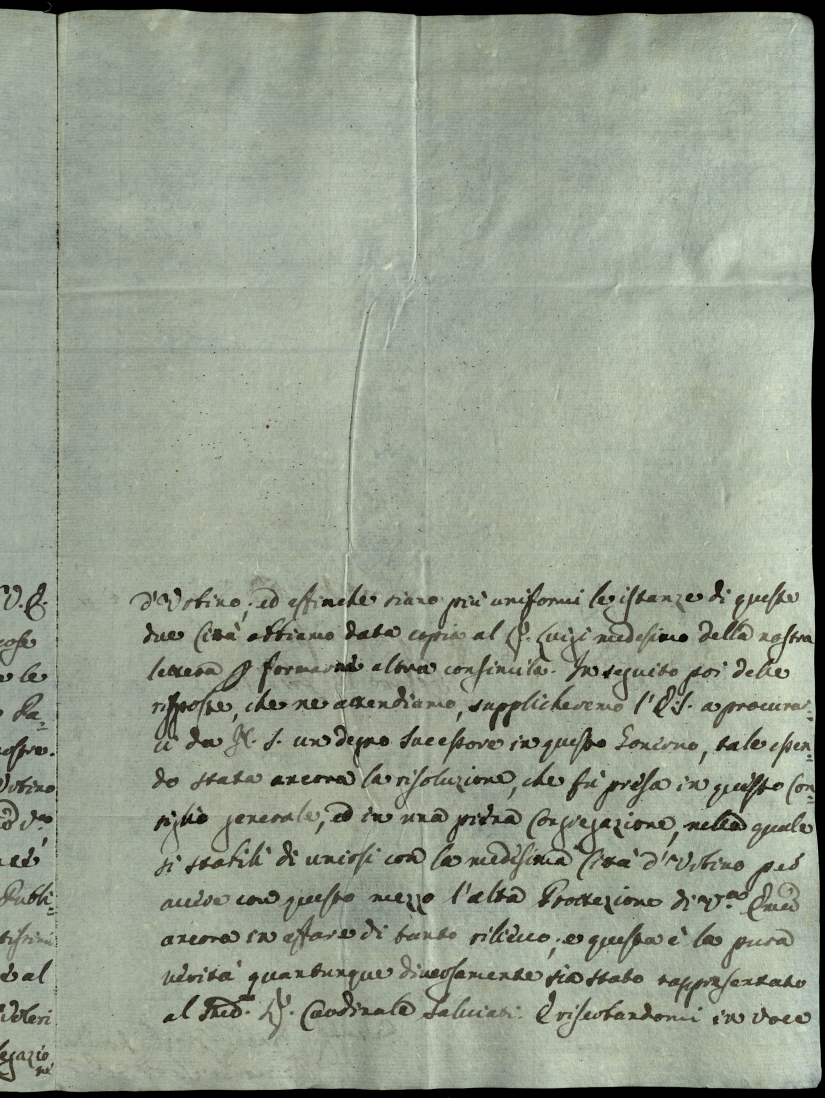 V. E.
cose
a le
Pa=
nostre.
Urbino
Publi=
al
Voleri
legazio
ne
d'Urbino, ed affinche siano più uniformi le istanze di queste
due Città abbiamo data copia al Sig. Luigi medesimo della nostra
lettera p formarne altra consimile. In seguito poi delle
risposte, che ne attendiamo, supplicheremo l'E. S. a procurar=
ci da N. S. un degno Successore in questo Governo, tale essen=
do stata ancora la risoluzione, che fù presa in questo Con=
siglio generale, ed in una piena Congregazione, nella quale
si stabilì di unirsi con la medesima Città d'Urbino per
avere con questo mezzo l'alta Protezione di V.ra Em̃a
ancora in affare di tanto rilievo; e questa è la pura
verità quantunque diversamente sia stato rappresentato
al Sig. Cardinale Salviati. E riserbandomi in voce